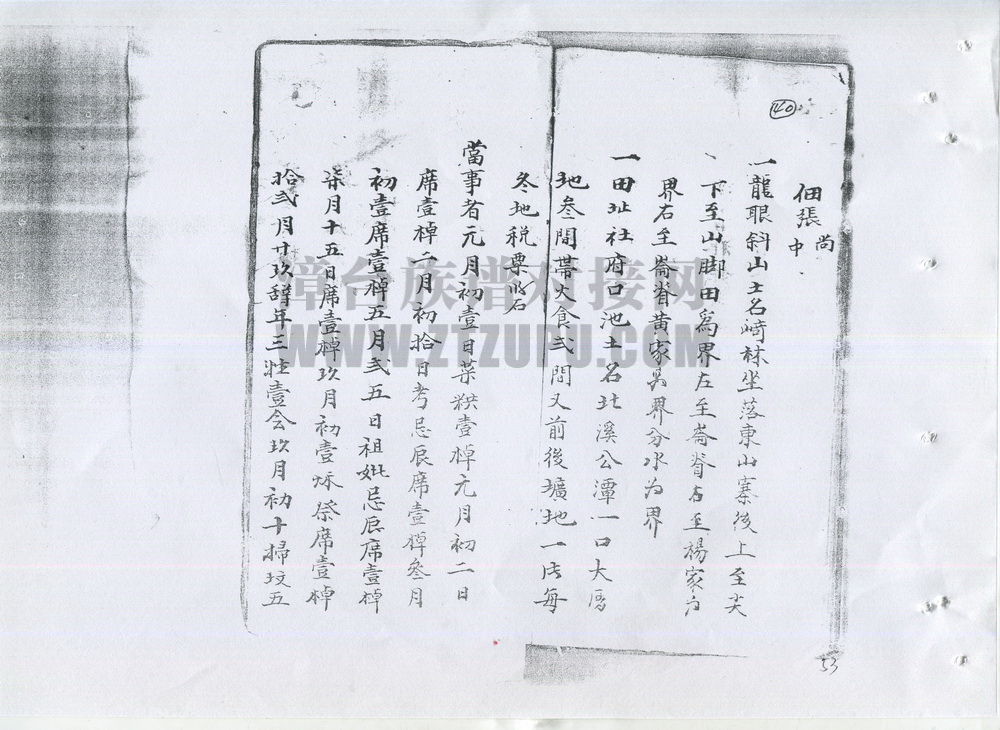 40
佃張尚中
一龍眼斜山土名崎林坐落東山寨後上至尖
下至山脚田為界左至崙脊右至楊家為
界右至崙脊黄家為界分水为界
一田址社府口池土名北溪公潭一口大厝
地叁間帶火食弍間又前後壙地一
冬地税粟石
當事者元月初壹日菜粿壹棹元月初二日
席壹棹二月初拾日考忌辰席壹棹叁月
初壹席壹棹五月弍五日祖妣忌辰席壹棹
柒月十五日席壹棹玖月初壹秌祭席壹棹
拾弍月廿玖辞年三牲壹会玖月初十掃坟五
53
漳台族谱对接网
WWW.ZTZUPU.COM